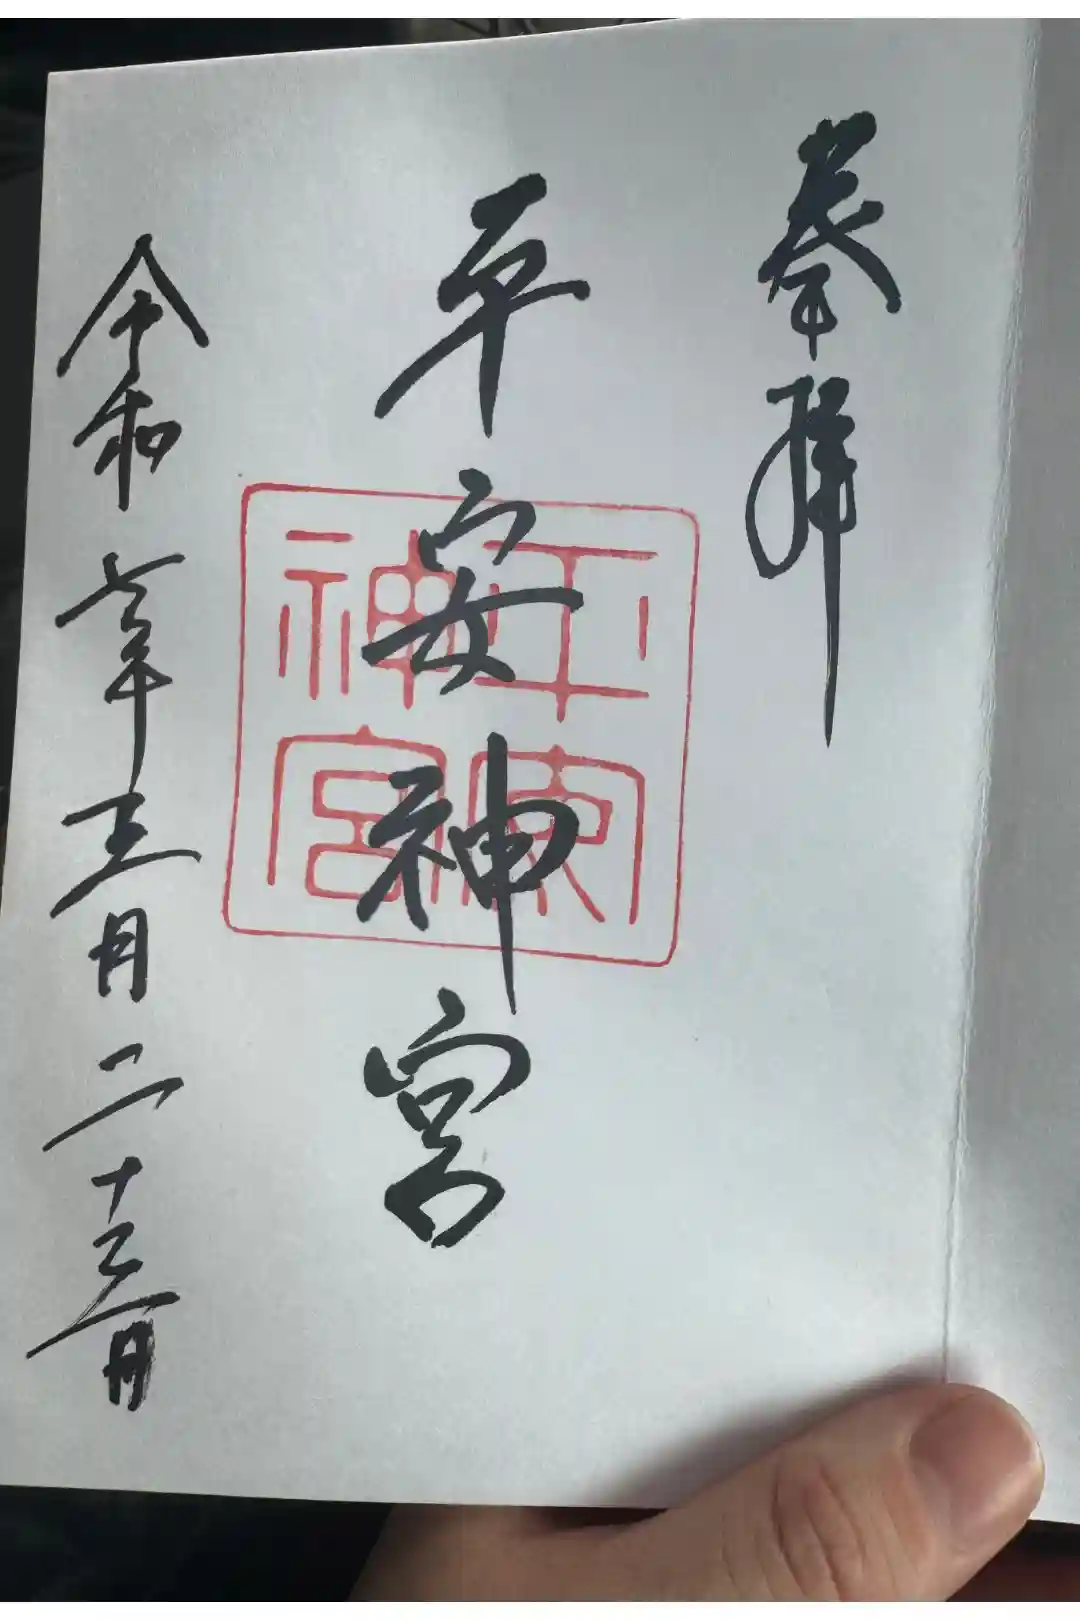 奉拝
平安神宮
令和六年三月二十三日
平安
神宮